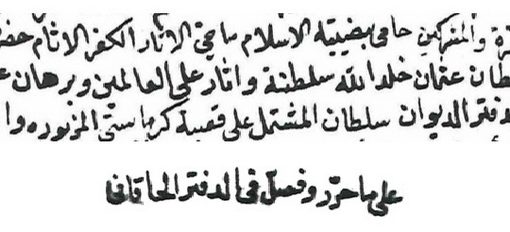 رة والمشركين حامى بيضية الاسلام ماحى الاثار الكفر الاثام
طان عثمان خلد الله سلطنة واثار على العالمين وبرهان
دفتر الديوان سلطان المشتمل على قصبة كرماستى المزبوره وا
على ما حرّر وفصّل فى الدفتر الخاقانى